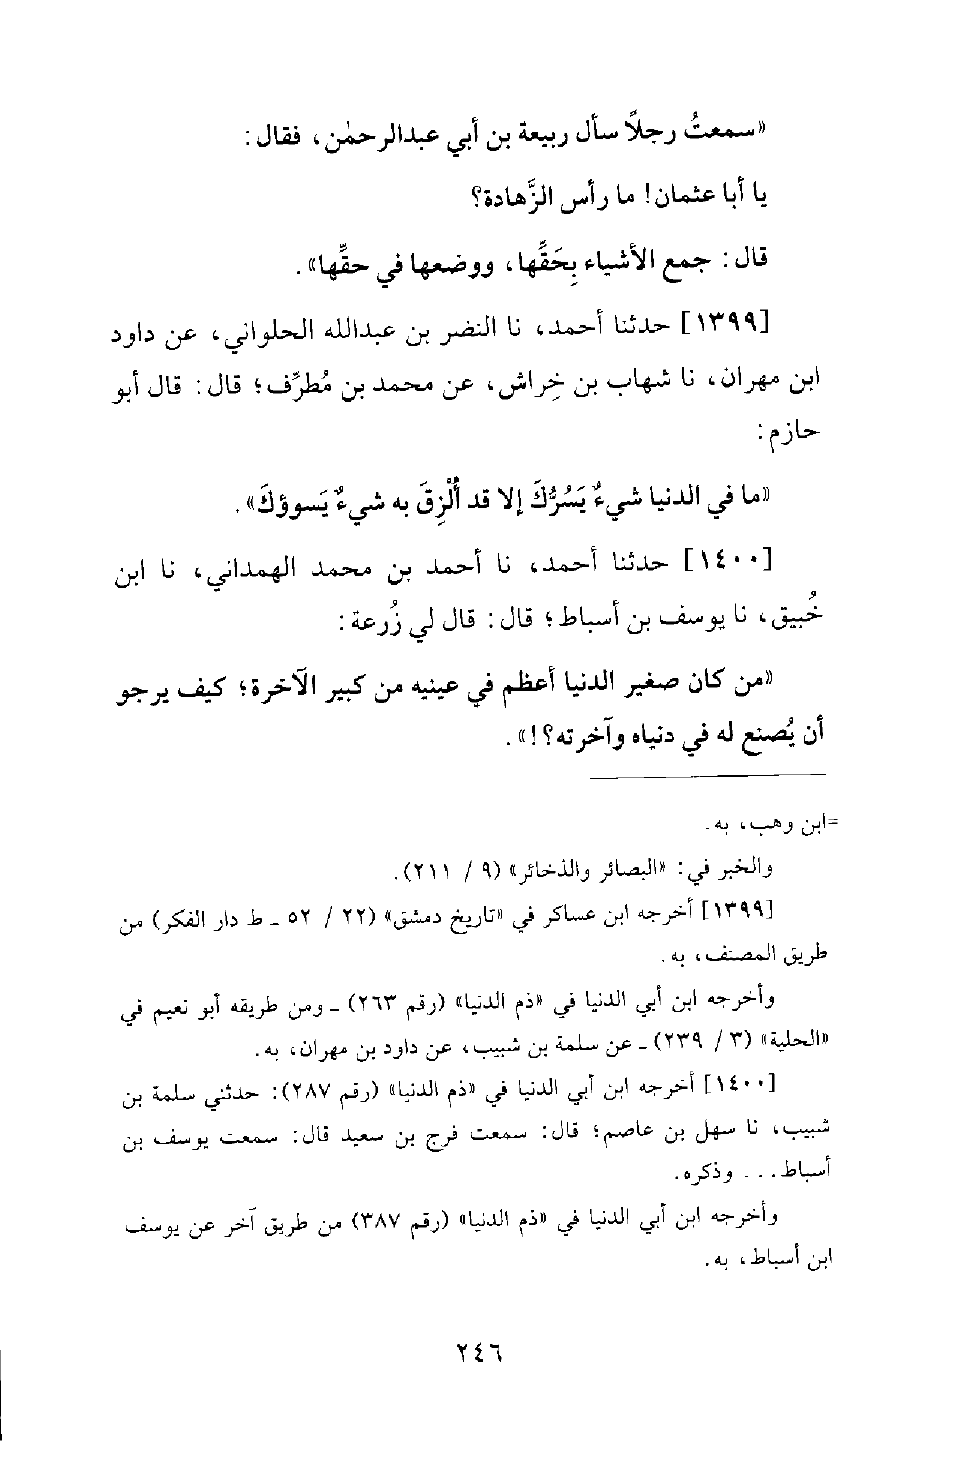 «سمعتُ رجلاً سأل ربيعة بن أبي عبدالرحمٰن، فقال:
يا أبا عثمان! ما رأس الزَّهادة؟
قال: جمع الأشياء بِحَقِّها، ووضعها في حقِّها».
[١٣٩٩] حدثنا أحمد، نا النضر بن عبدالله الحلواني، عن داود
ابن مهران، نا شهاب بن خِراش، عن محمد بن مُطرِّف؛ قال: قال أبو
حازم:
«ما في الدنيا شيءٌ يَسُرُّكَ إلا قد أُلْزِقَ به شيءٌ يَسوؤكَ».
[١٤٠٠] حدثنا أحمد، نا أحمد بن محمد الهمداني، نا ابن
خُبيق، نا يوسف بن أسباط؛ قال: قال لي زُرعة:
«من كان صغير الدنيا أعظم في عينيه من كبير الآخرة؛ كيف يرجو
أن يُصنع له في دنياه وآخرته؟!».
=ابن وهب، به.
والخبر في: «البصائر والذخائر» (٩ / ٢١١).
[١٣٩٩] أخرجه ابن عساكر في «تاريخ دمشق» (٢٢ / ٥٢ ـ ط دار الفكر) من
طريق المصنف، به.
وأخرجه ابن أبي الدنيا في «ذم الدنيا» (رقم ٢٦٣) ـ ومن طريقه أبو نعيم في
«الحلية» (٣ / ٢٣٩) ـ عن سلمة بن شبيب، عن داود بن مهران، به.
[١٤٠٠] أخرجه ابن أبي الدنيا في «ذم الدنيا» (رقم ٢٨٧): حدثني سلمة بن
شبيب، نا سهل بن عاصم؛ قال: سمعت فرج بن سعيد قال: سمعت يوسف بن
أسباط... وذكره.
وأخرجه ابن أبي الدنيا في «ذم الدنيا» (رقم ٣٨٧) من طريق آخر عن يوسف
ابن أسباط، به.
٢٤٦